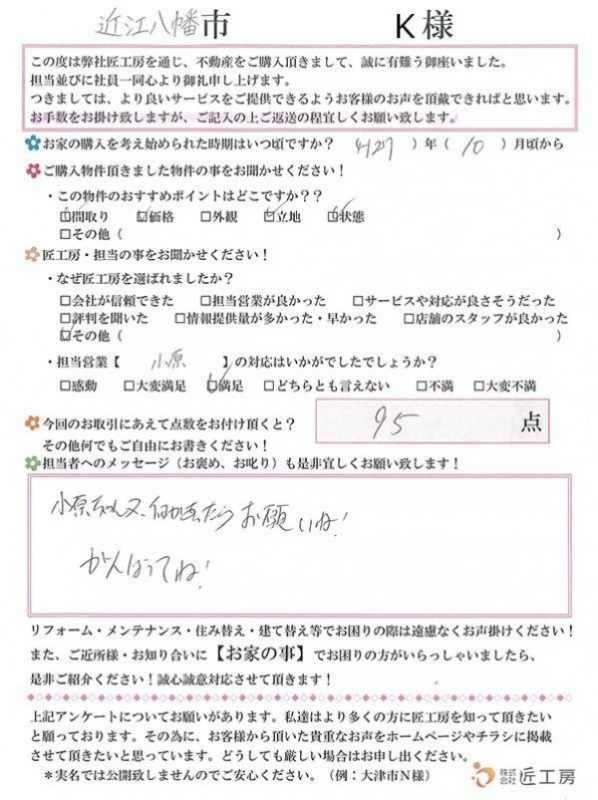 近江八幡市 K様
この度は弊社匠工房を通じ、不動産をご購入頂きまして、誠に有難う御座いました。
担当並びに社員一同心より御礼申し上げます。
つきましては、より良いサービスをご提供できるようお客様のお声を頂戴できればと思います。
お手数をお掛け致しますが、ご記入の上ご返送の程宜しくお願い致します。
お家の購入を考え始められた時期はいつ頃ですか? H27 )年( 10 )月頃から
ご購入物件頂きました物件の事をお聞かせください!
・この物件のおすすめポイントはどこですか??
☑間取り ☑価格 □外観 ☑立地 ☑状態
□その他( )
匠工房・担当の事をお聞かせください!
・なぜ匠工房を選ばれましたか?
□会社が信頼できた □担当営業が良かった □サービスや対応が良さそうだった
□評判を聞いた □情報提供量が多かった・早かった □店舗のスタッフが良かった
☑その他( )
・担当営業【 小原 】の対応はいかがでしたでしょうか?
□感動 □大変満足 ☑満足 □どちらとも言えない □不満 □大変不満
今回のお取引にあえて点数をお付け頂くと? 95 点
その他何でもご自由にお書きください!
担当者へのメッセージ(お褒め、お叱り)も是非宜しくお願い致します!
小原ちゃん又、何かあったらお願いね!
がんばってね!
リフォーム・メンテナンス・住み替え・建て替え等でお困りの際は遠慮なくお声掛けください!
また、ご近所様・お知り合いに【お家の事】でお困りの方がいらっしゃいましたら、
是非ご紹介ください!誠心誠意対応させて頂きます!
上記アンケートについてお願いがあります。私達はより多くの方に匠工房を知って頂きたい
と願っております。その為に、お客様から頂いた貴重なお声をホームページやチラシに掲載
させて頂きたいと思っています。どうしても厳しい場合はお申し出ください。
*実名では公開致しませんのでご安心ください。(例:大津市N様) 株式会社 匠工房